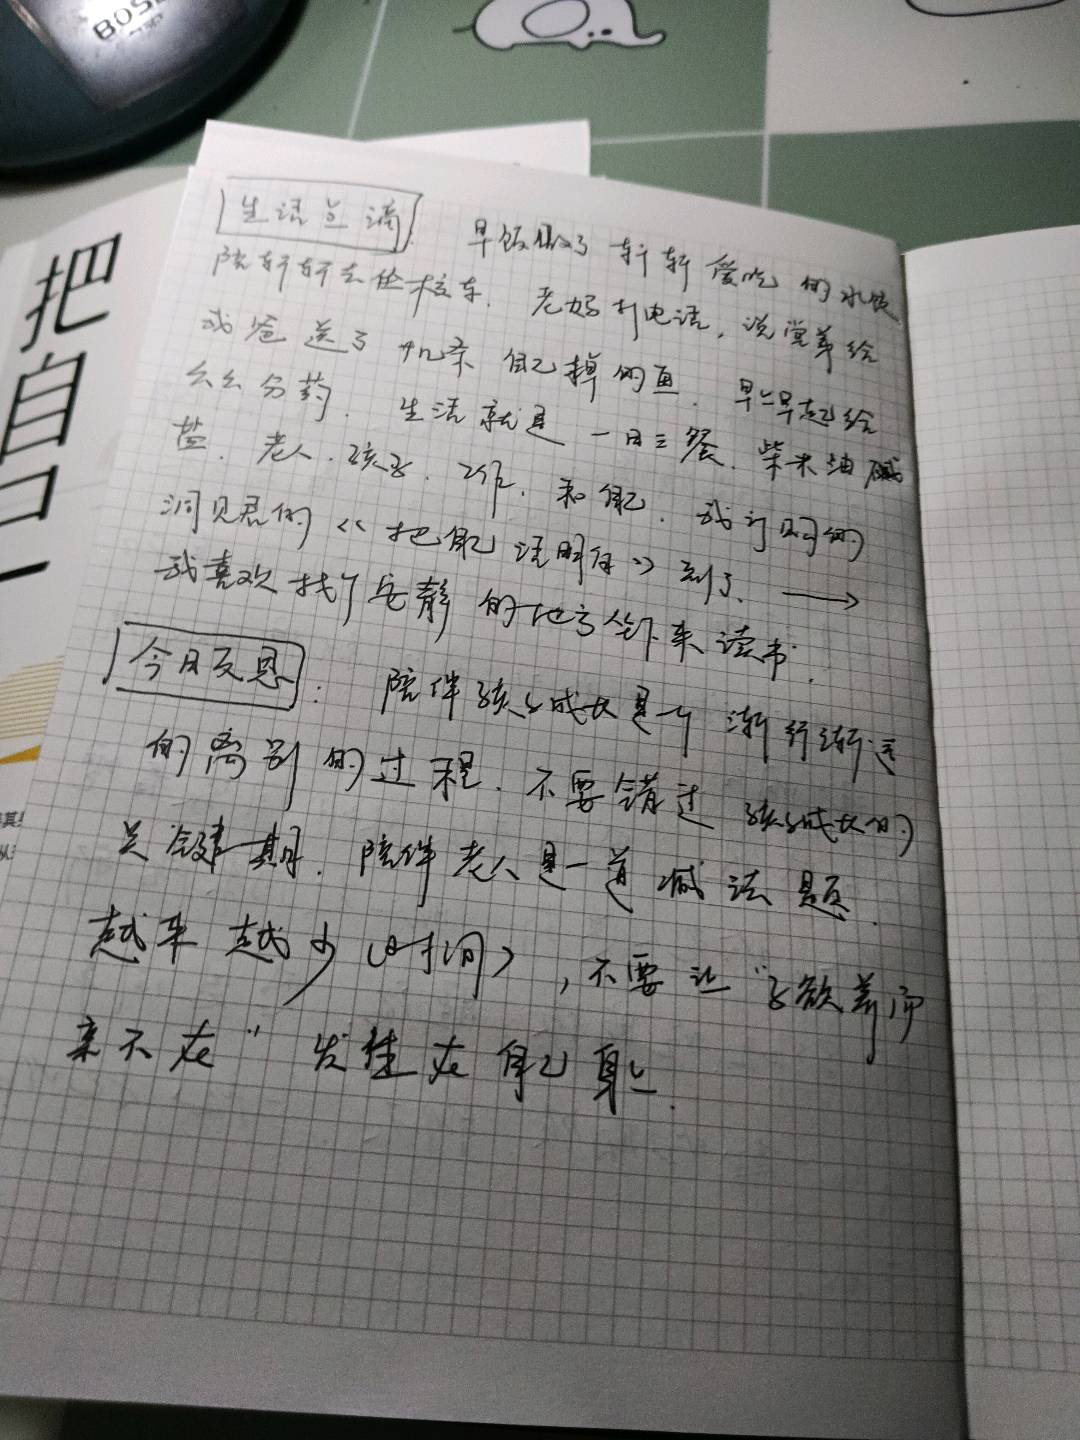 BOSE
把自己
生活点滴 早饭做了轩轩爱吃的水饺
陪轩轩去坐校车. 老妈打电话, 说堂弟给
我爸送了 自己掉的鱼. 早上早起给
分药. 生活就是一日三餐. 柴米油碱
盐. 老人. 孩子. 工作. 和自己. 我订购的
洞见君的《把自己活明白》到了. →
我喜欢找个安静的地方坐下来读书.
今日反思: 陪伴孩子成长是一个渐行渐远
的离别的过程. 不要错过孩子成长的
关键期. 陪伴老人是一道减法题.
越来越少(时间), 不要让"子欲养而
亲不在"发生在自己身上.